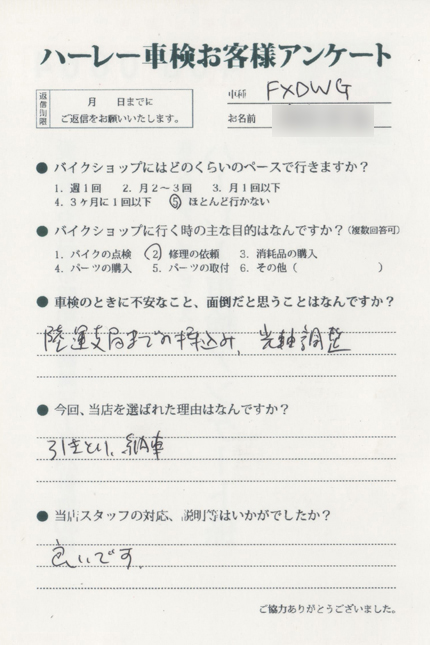 ハーレー車検お客様アンケート
返信期限
月　日までに
ご返信をお願いいたします。
車種 FXDWG
お名前
● バイクショップにはどのくらいのペースで行きますか？
1. 週1回　2. 月2～3回　3. 月1回以下
4. 3ヶ月に1回以下　⑤ ほとんど行かない
● バイクショップに行く時の主な目的はなんですか？（複数回答可）
1. バイクの点検　② 修理の依頼　3. 消耗品の購入
4. パーツの購入　5. パーツの取付　6. その他（　　　）
● 車検のときに不安なこと、面倒だと思うことはなんですか？
陸運支局までの持込み、光軸調整
● 今回、当店を選ばれた理由はなんですか？
引きとり、納車
● 当店スタッフの対応、説明等はいかがでしたか？
良いです。
ご協力ありがとうございました。